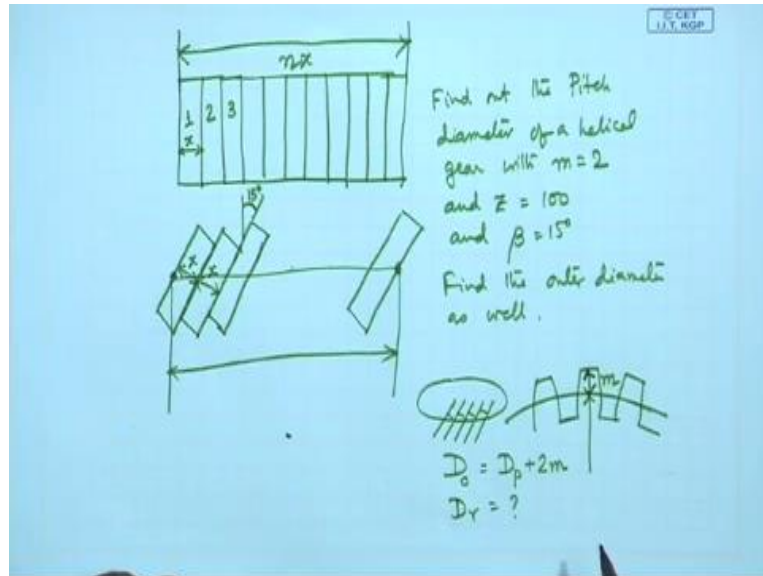 © CET
I.I.T. KGP
nx
1 2 3
x
15°
x x
Find out the Pitch
diameter of a helical
gear with m = 2
and Z = 100
and β = 15°
Find the outer diameter
as well.
m
D₀ = Dp + 2m
Dr = ?